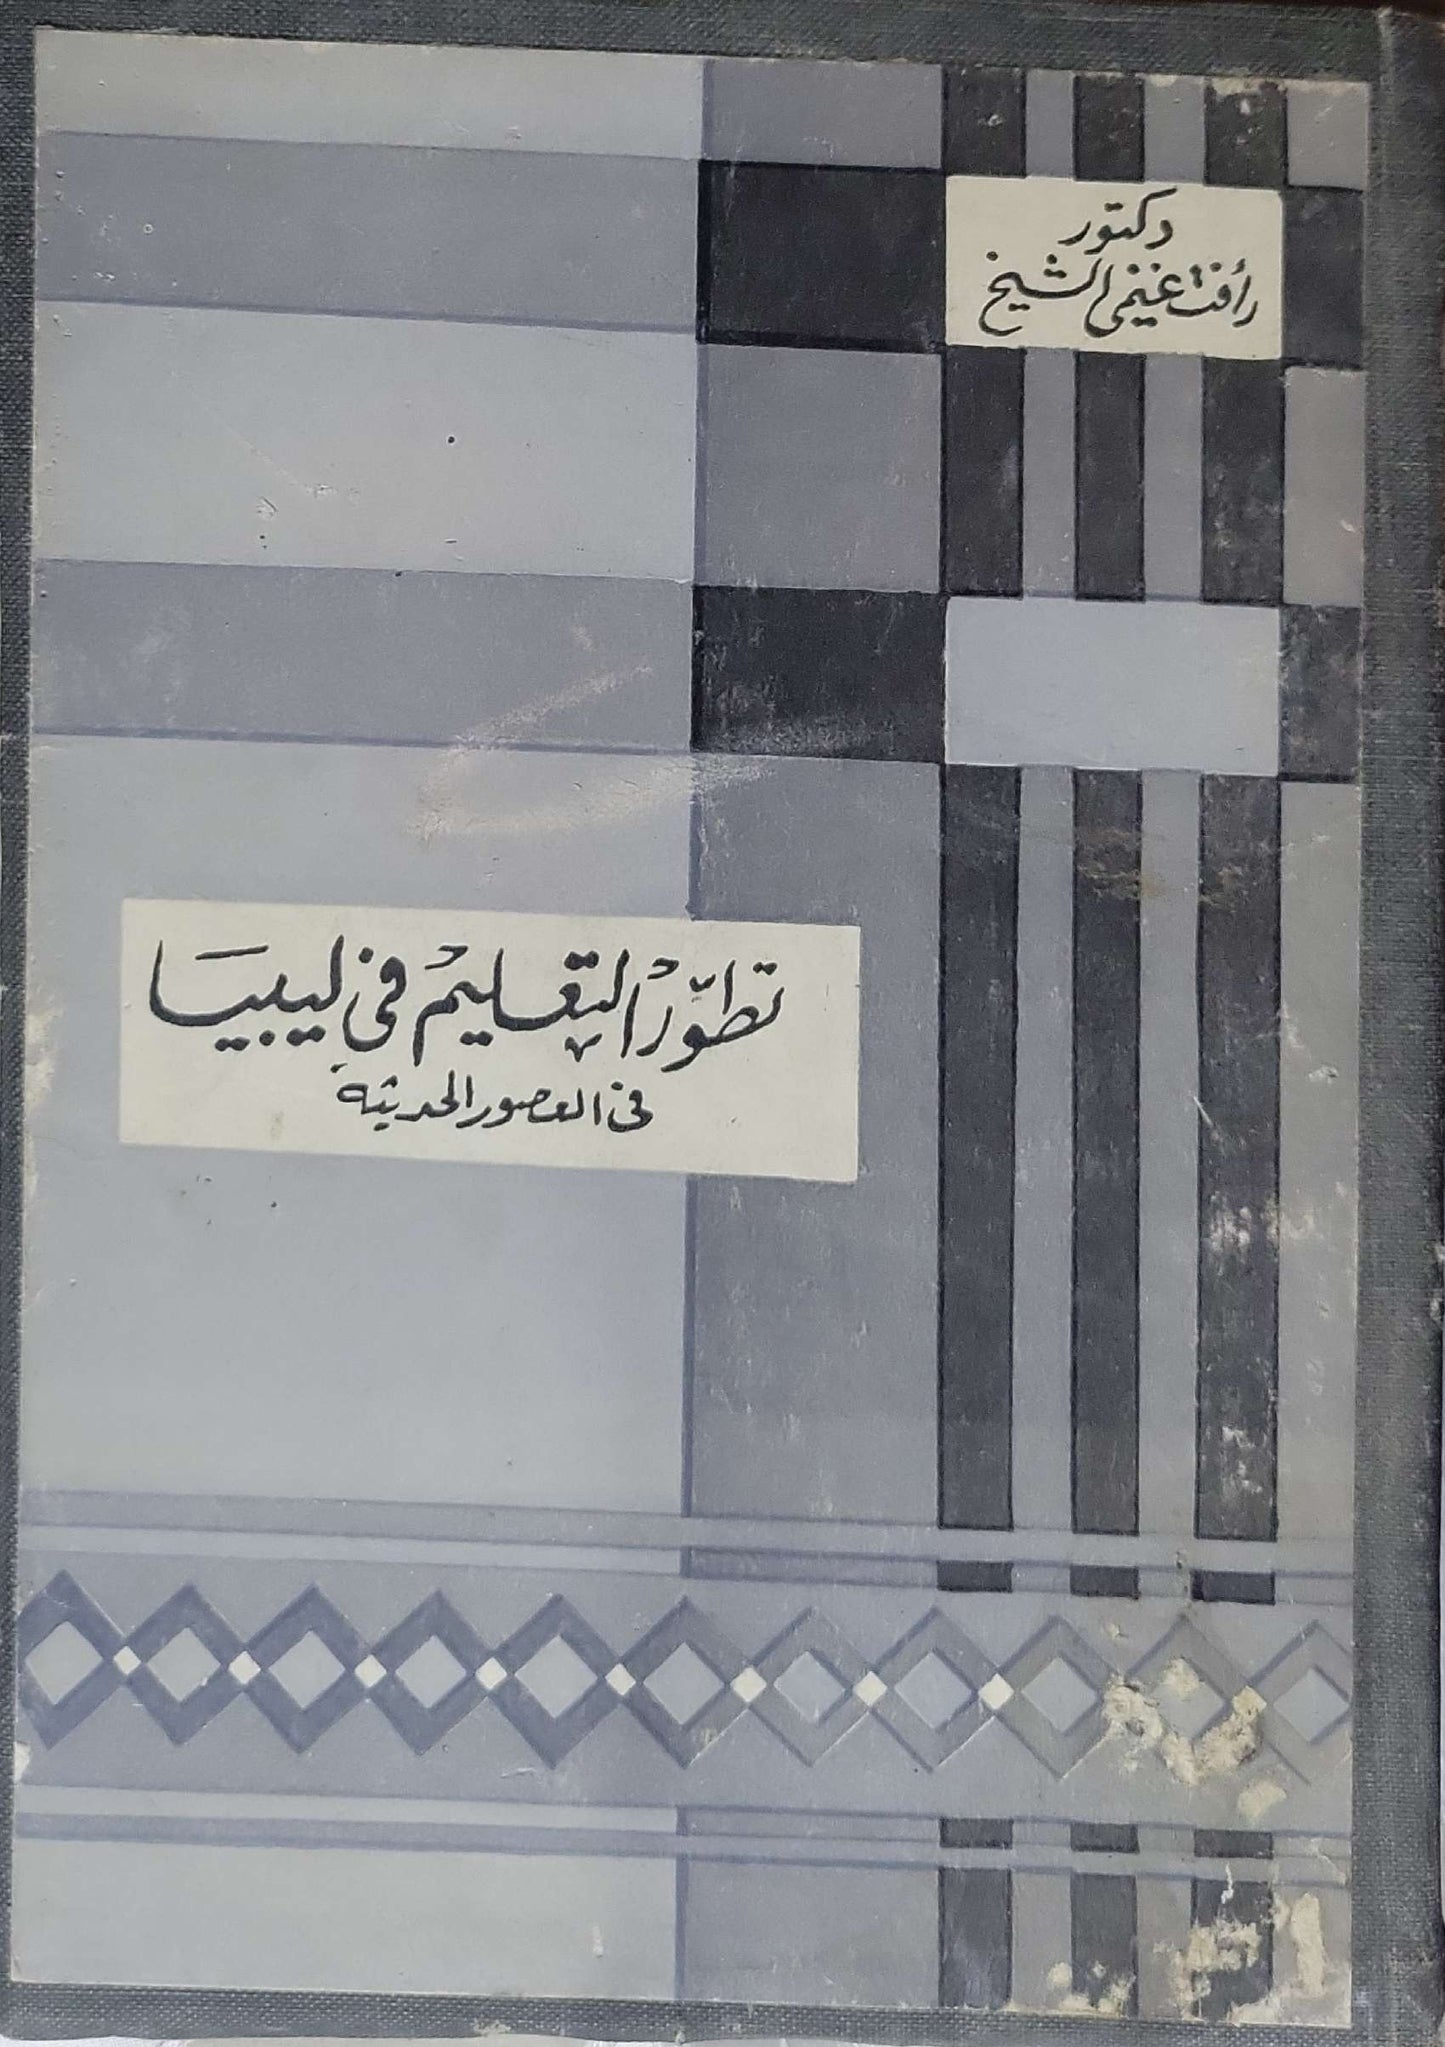 دكتور
رأفت غنيمى الشيخ
تطوّر التعليم فى ليبيا
فى العصور الحديثة